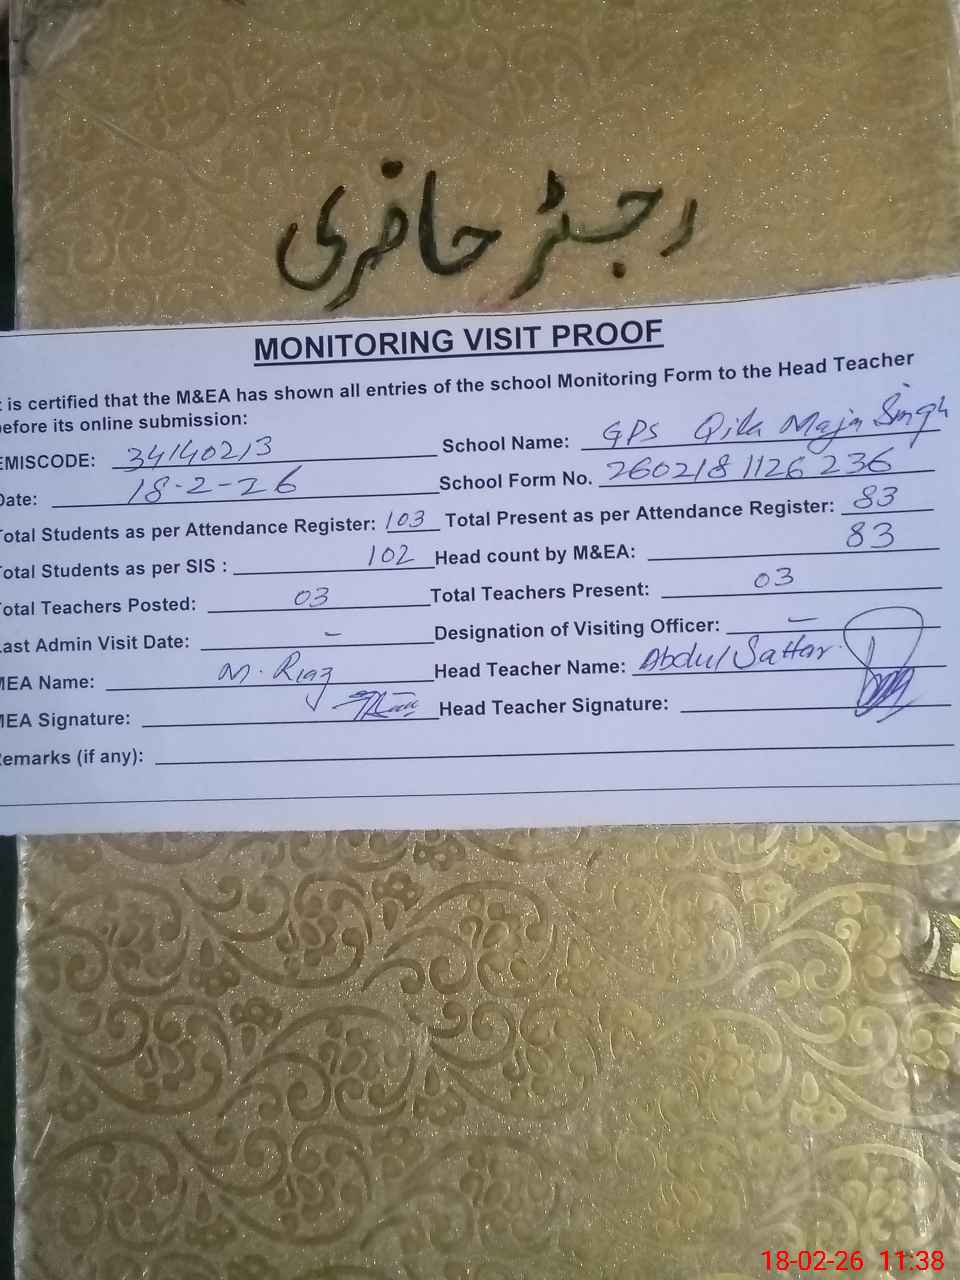 رجسٹر حاضری
MONITORING VISIT PROOF
is certified that the M&EA has shown all entries of the school Monitoring Form to the Head Teacher
before its online submission:
EMISCODE: 34140213 School Name: GPS Qila Maja Singh
Date: 18-2-26 School Form No. 2602181126236
Total Students as per Attendance Register: 103 Total Present as per Attendance Register: 83
Total Students as per SIS : 102 Head count by M&EA: 83
Total Teachers Posted: 03 Total Teachers Present: 03
Last Admin Visit Date: – Designation of Visiting Officer: –
MEA Name: M. Riaz Head Teacher Name: Abdul Sattar
MEA Signature: Head Teacher Signature:
Remarks (if any):
18-02-26 11:38